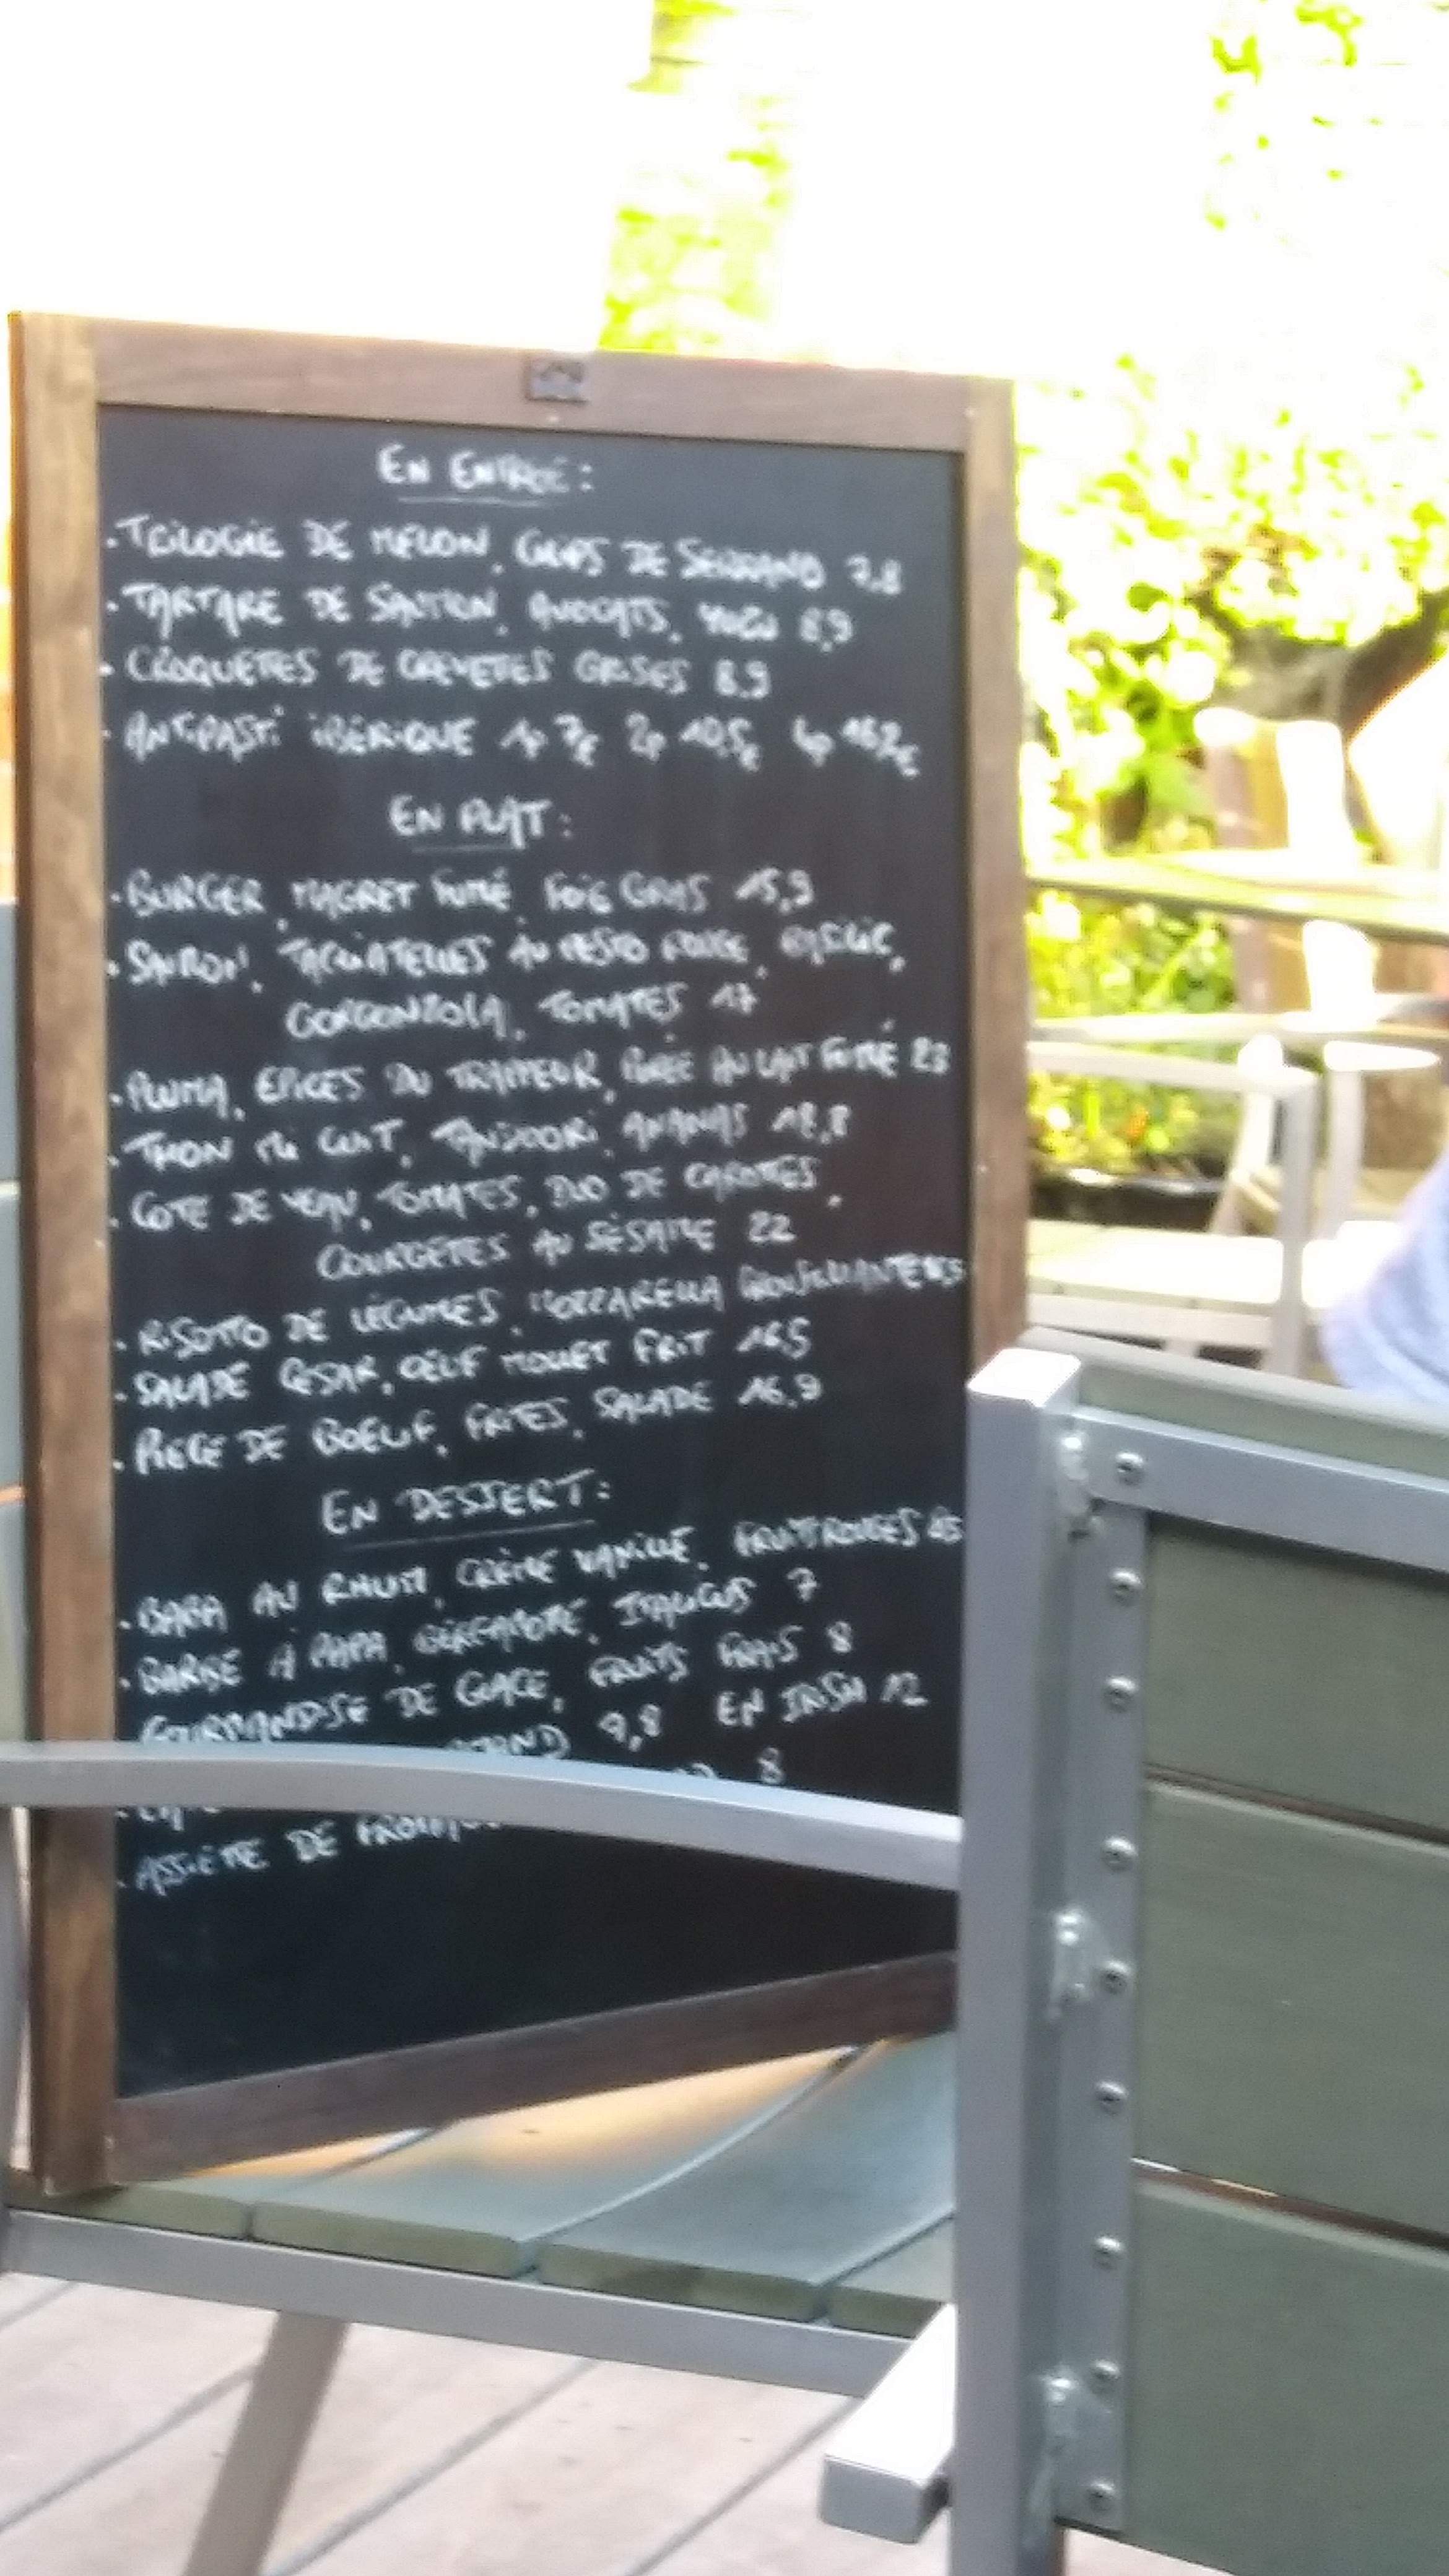 EN ENTRÉE:
. TRILOGIE DE MELON, CHIPS DE SERRANO 7,8
. TARTARE DE SAUMON, AVOCATS, YUZU 8,9
. CROQUETTES DE CREVETTES GRISES 8,9
. ANTIPASTI IBÉRIQUE 1p 7€ 2p 10,5€ 4p
EN PLAT:
. BURGER, MAGRET FUMÉ, FOIE GRAS 15,9
. SAUMON, TAGLIATELLES AU PESTO ROUGE, BASILIC,
GORGONZOLA, TOMATES 17
. PLUMA, EPICES DU TRAPPEUR, PURÉE AU LAIT FUMÉ 23
. THON MI CUIT, TANDOORI, ANANAS 18,8
. COTE DE VEAU, TOMATES, DUO DE CAROTTES,
COURGETTES AU SÉSAME 22
. RISOTTO DE LÉGUMES, MOZZARELLA
. SALADE CESAR, OEUF MOLLET FRIT 16,5
. PIECE DE BOEUF, FRITES, SALADE 16,9
EN DESSERT:
. BABA AU RHUM, CRÈME VANILLE, FRUITS ROUGES
. BARBE À PAPA, BERGAMOTE, 7
GOURMANDISE DE GLACE, FRUITS FRAIS 8
EN IRISH 12
8
. ASSIETTE DE